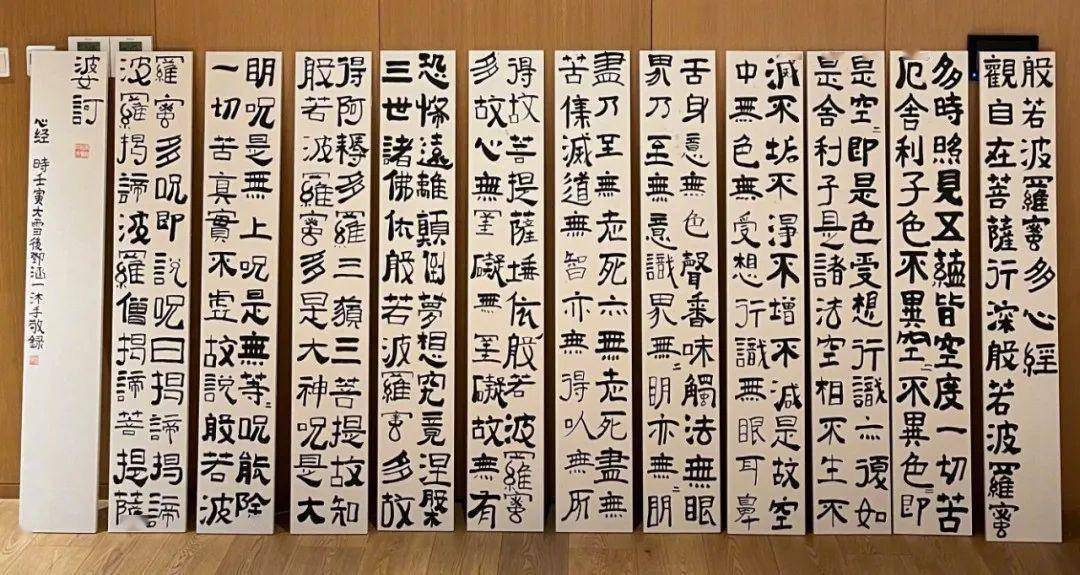 般若波羅蜜多心經
觀自在菩薩行深般若波羅蜜
多時照見五蘊皆空度一切苦
厄舍利子色不異空〻不異色〻即
是空〻即是色受想行識亦復如
是舍利子是諸法空相不生不
滅不垢不淨不增不減是故空
中無色無受想行識無眼耳鼻
舌身意無色聲香味觸法無眼
界乃至無意識界無〻明亦無〻明
盡乃至無老死亦無老死盡無
苦集滅道無智亦無得以無所
得故菩提薩埵依般若波羅蜜
多故心無罣礙無罣礙故無有
恐怖遠離顛倒夢想究竟涅槃
三世諸佛依般若波羅蜜多故
得阿耨多羅三藐三菩提故知
般若波羅蜜多是大神呪是大
明呪是無上呪是無等〻呪能除
一切苦真實不虛故說般若波
羅蜜多呪即說呪曰揭諦揭諦
波羅揭諦波羅僧揭諦菩提薩
婆訶
心经 時壬寅大雪後鄧涵一沐手敬録